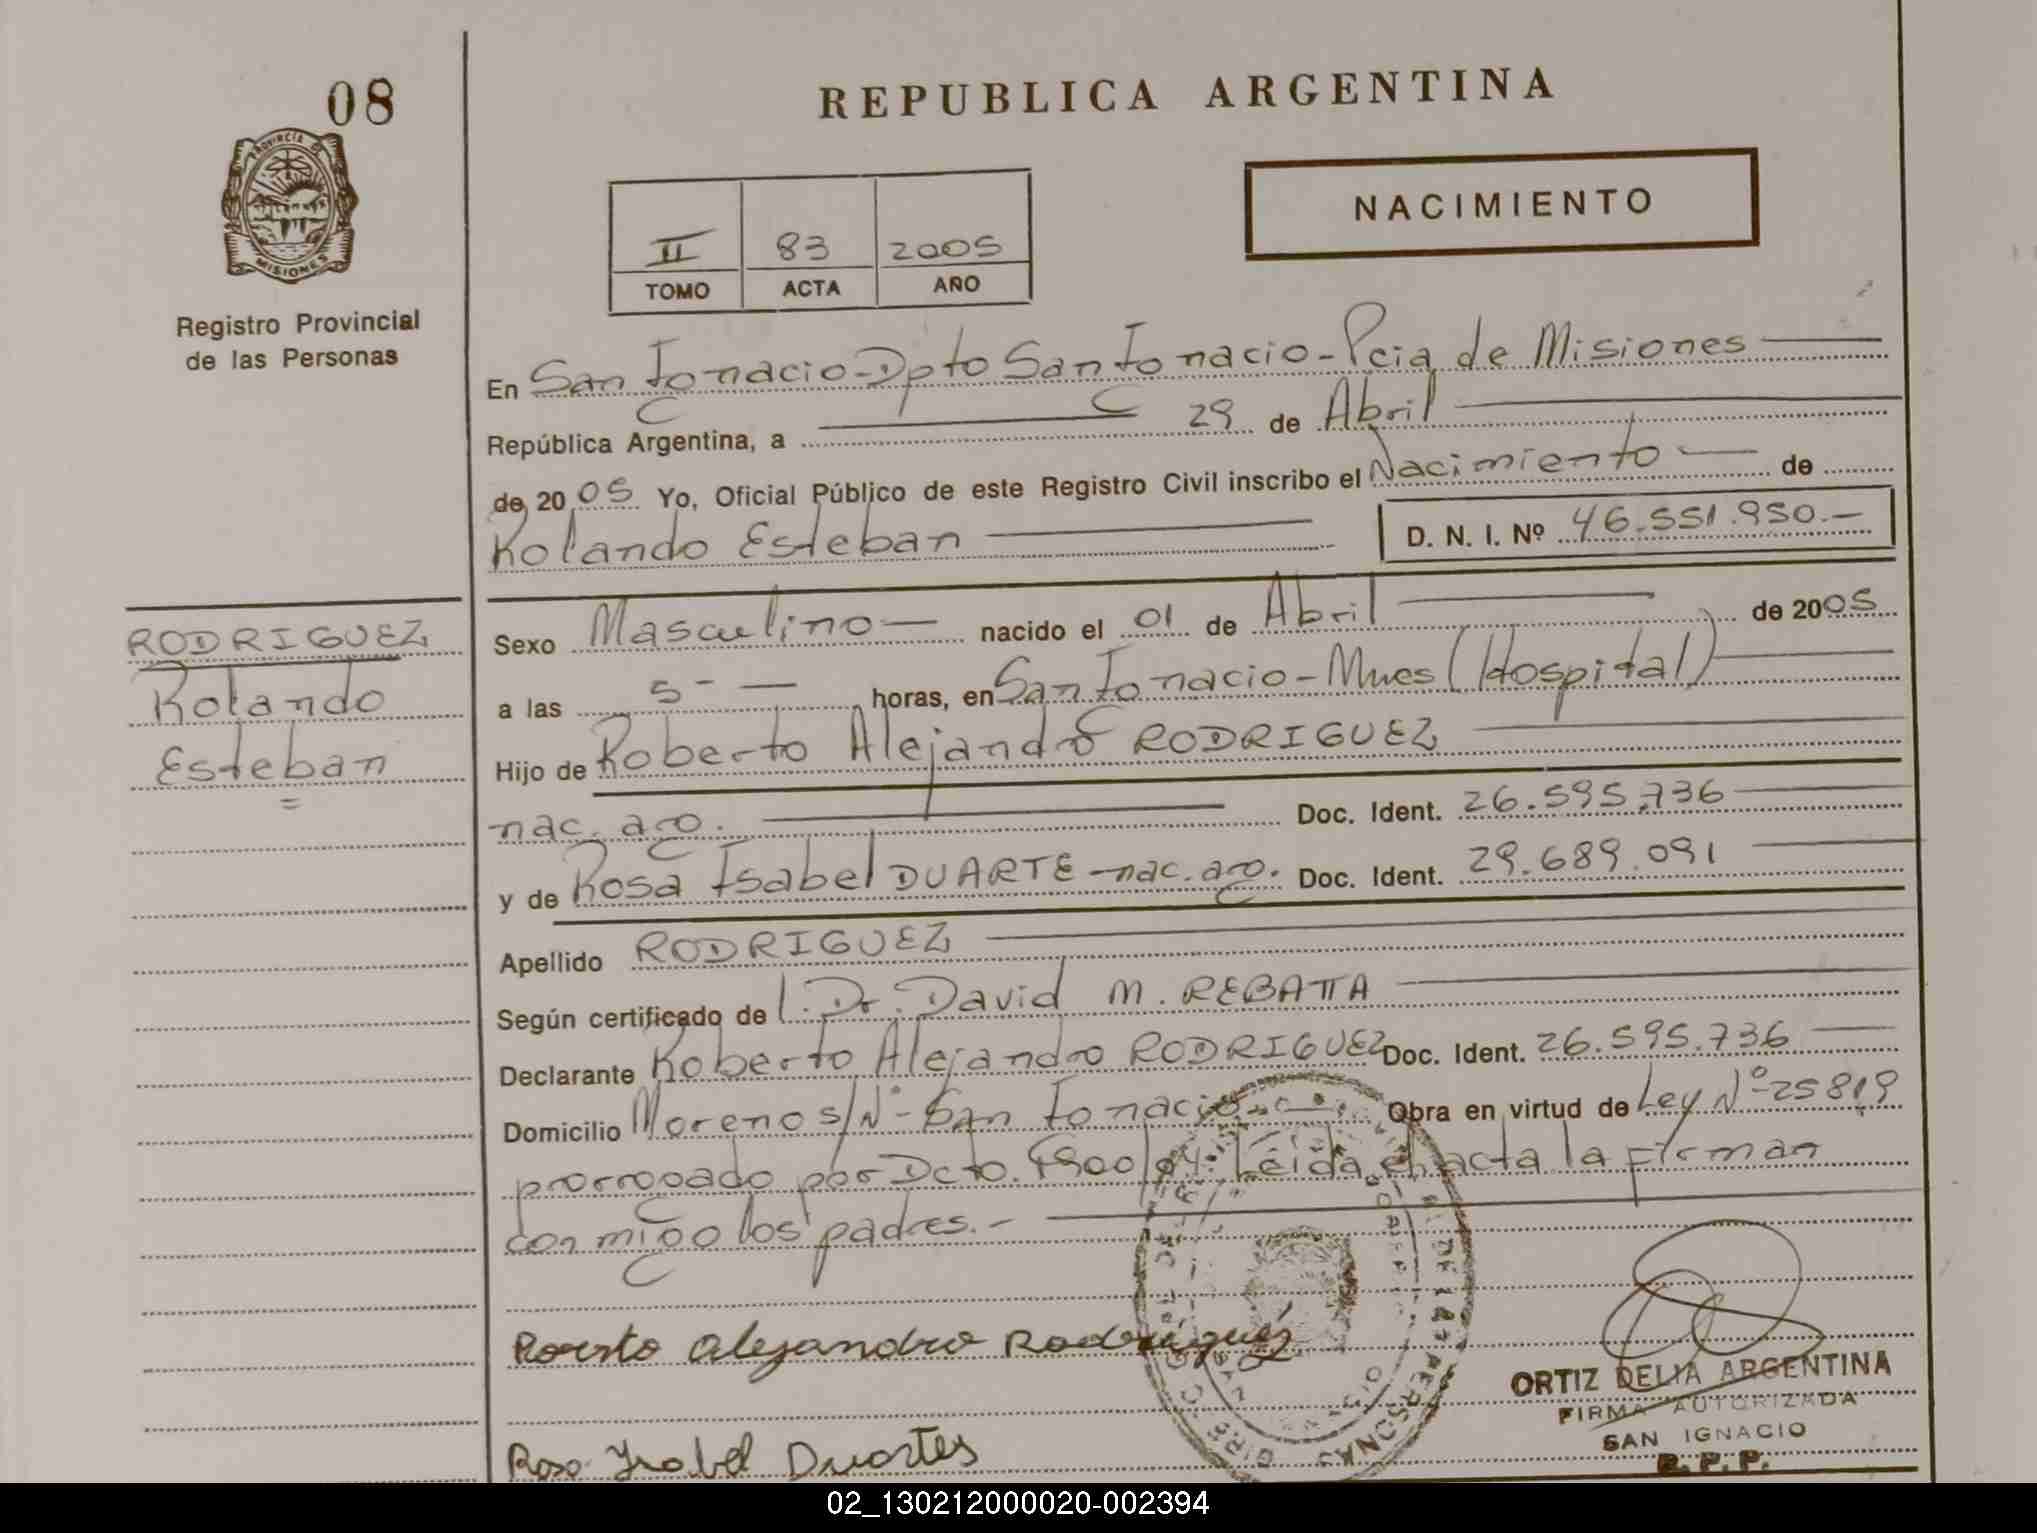 08
REPUBLICA ARGENTINA
PROVINCIA DE
MISIONES
Registro Provincial
de las Personas
NACIMIENTO
II 83 2005
TOMO ACTA AÑO
En San Ignacio-Dpto San Ignacio-Pcia de Misiones
República Argentina, a 29 de Abril
de 2005 Yo, Oficial Público de este Registro Civil inscribo el Nacimiento de
Rolando Esteban D. N. I. Nº 46.551.950.-
RODRIGUEZ
Rolando
Esteban
Sexo Masculino nacido el 01 de Abril de 2005
a las 5 horas, en San Ignacio-Mnes (Hospital)
Hijo de Roberto Alejandro RODRIGUEZ
nac. arg. Doc. Ident. 26.595.736
y de Rosa Isabel DUARTE-nac. arg. Doc. Ident. 29.689.091
Apellido RODRIGUEZ
Según certificado de Dr. David M. REBATTA
Declarante Roberto Alejandro RODRIGUEZ Doc. Ident. 26.595.736
Domicilio Moreno S/Nº-San Ignacio Obra en virtud de Ley Nº 25819
prorrogado por Dcto. Leída el acta la firman
conmigo los padres.-
Alejandro Rodriguez
Rosa Ysabel Duartes
ORTIZ DELIA ARGENTINA
FIRMA AUTORIZADA
SAN IGNACIO
R. P. P.
02_130212000020-002394